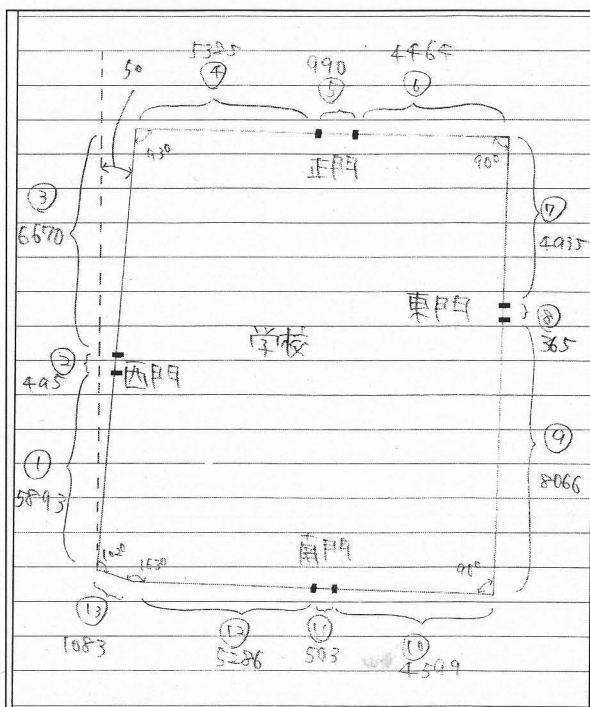 50
④
990
⑤
4464
⑥
93°
正門
90°
③
6670
⑦
4935
東門
⑧
365
学校
②
495
西門
①
5893
⑨
8066
102°
153°
南門
90°
⑬
1083
⑫
5286
⑪
503
⑩
4599